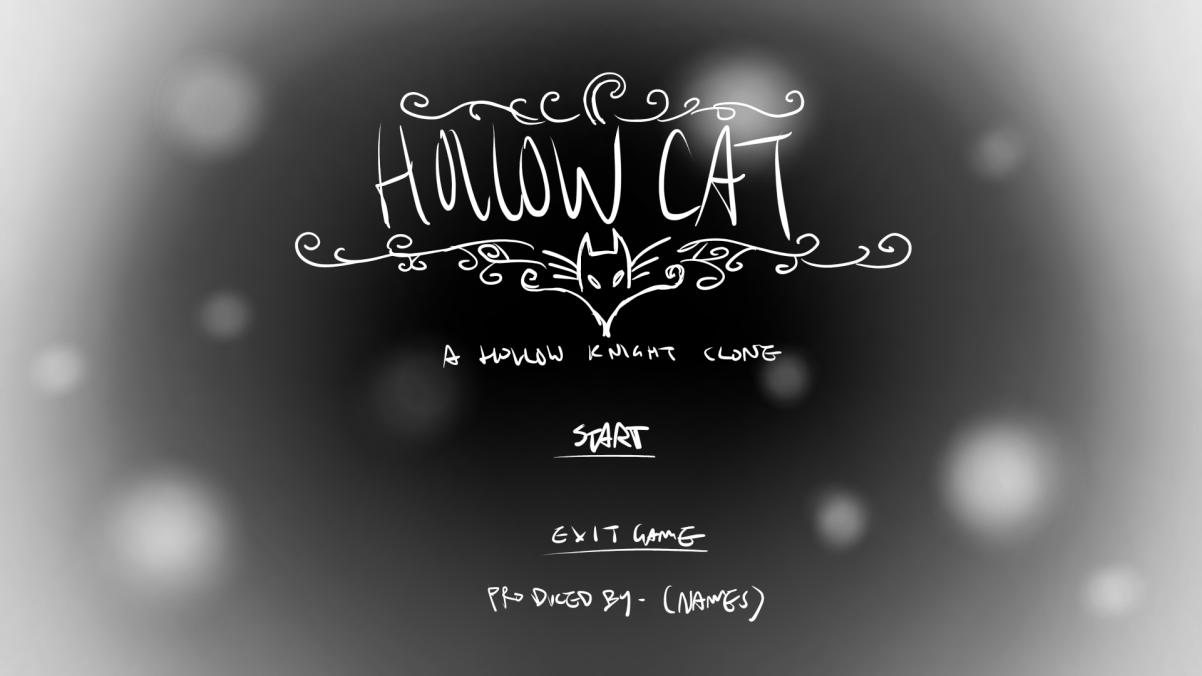 HOLLOW CAT
A HOLLOW KNIGHT CLONE
START
EXIT GAME
PRODUCED BY - (NAMES)